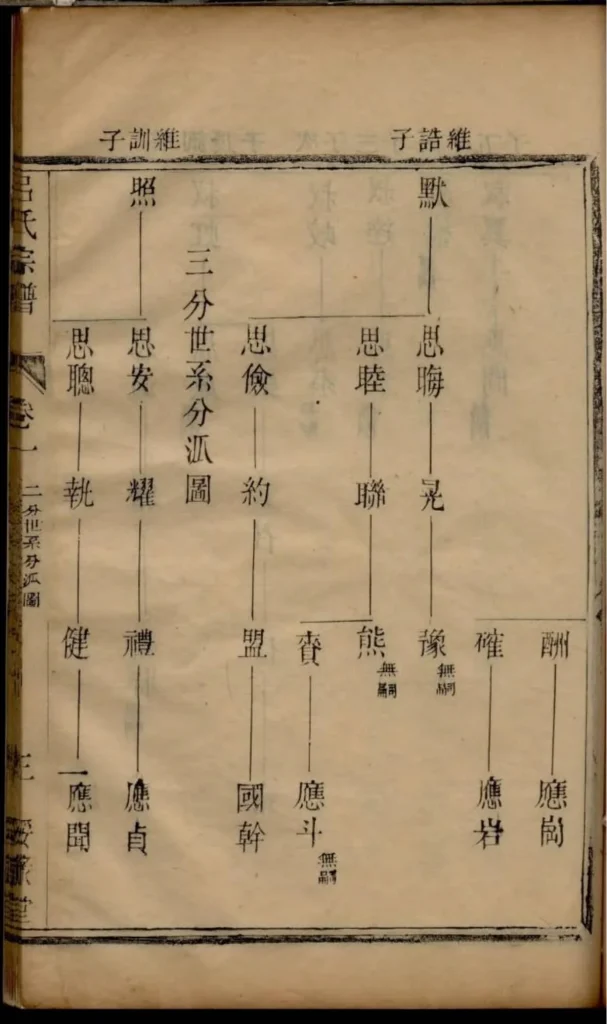 維誥子
維訓子
酬 應崗
確 應岩
默 思晦 晃 豫 無嗣
思睦 聯 熊 無嗣
賚 應斗 無嗣
思儉 約 盟 國幹
三分世系分泒圖
照 思安 耀 禮 應貞
思聰 執 健 應聞
呂氏宗譜 卷一 二分世系分泒圖 堂